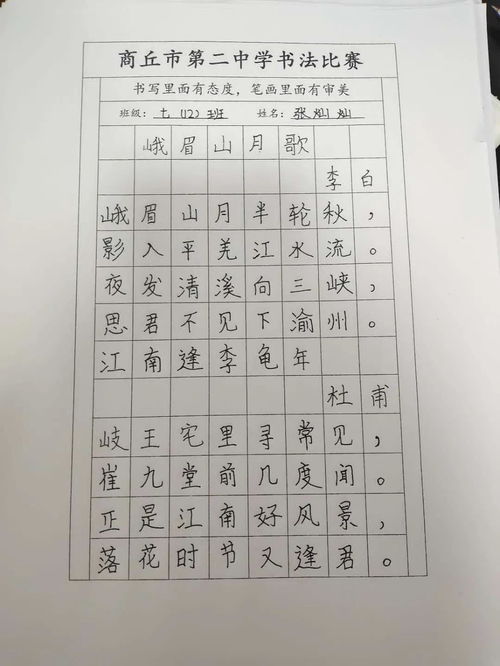 商丘市第二中学书法比赛
书写里面有态度，笔画里面有审美
班级：七（12）班 姓名：张灿灿
峨眉山月歌
李白
峨眉山月半轮秋，
影入平羌江水流。
夜发清溪向三峡，
思君不见下渝州。
江南逢李龟年
杜甫
岐王宅里寻常见，
崔九堂前几度闻。
正是江南好风景，
落花时节又逢君。